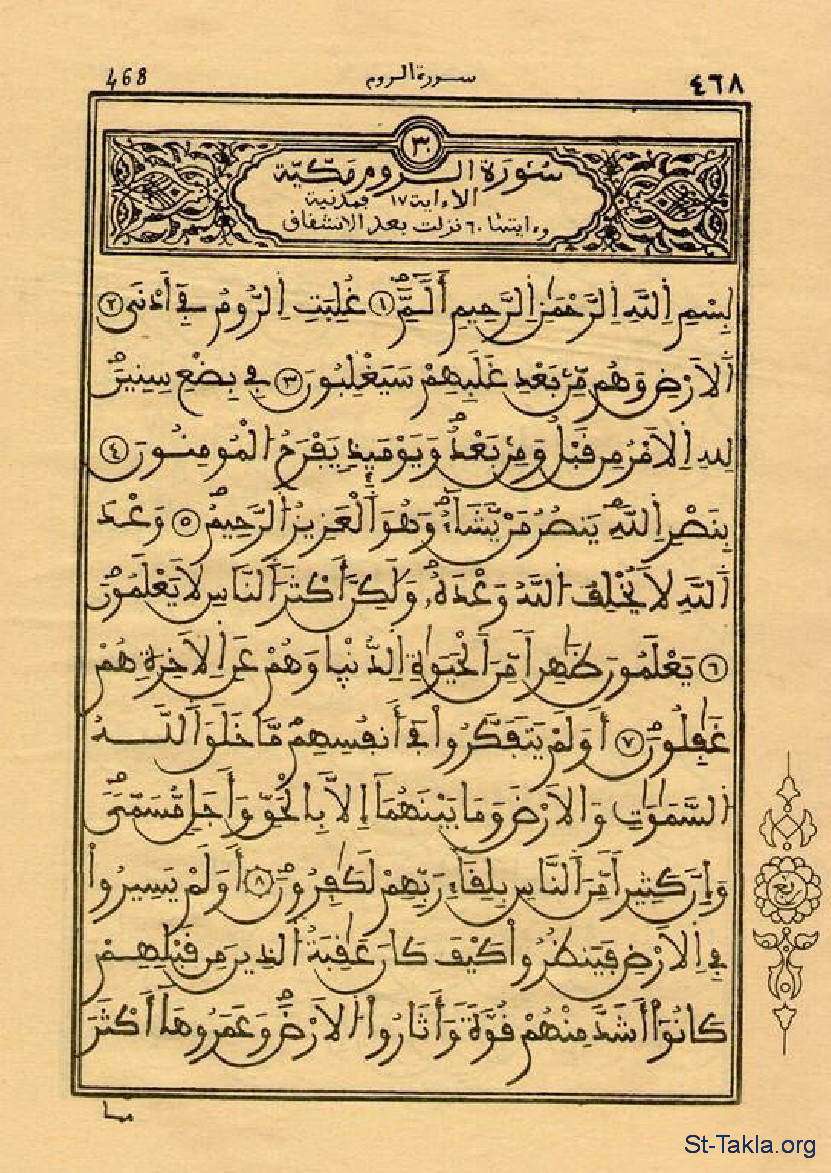 468 سورة الروم ٤٦٨
٣٠
سُورَةُ الرُّومِ مَكِّيَّة
الا ءاية ١٧ فمدنية
وءايتها ٦٠ نزلت بعد الانشقاق
بِسْمِ اِللَّهِ اِلرَّحْمَٰنِ اِلرَّحِيمِ أَلَٓمِّٓۖ ١ غُلِبَتِ اِلرُّومُ فِےٓ أَدْنَى ٢
اَلَارْضِ وَهُم مِّنۢ بَعْدِ غَلَبِهِمْ سَيَغْلِبُونَ ٣ فِے بِضْعِ سِنِينَۖ
لِلهِ اِلَامْرُ مِن قَبْلُ وَمِنۢ بَعْدُۖ وَيَوْمَئِذٖ يَفْرَحُ اُلْمُومِنُونَ ٤
بِنَصْرِ اِللَّهِۖ يَنصُرُ مَنْ يَّشَآءُۖ وَهُوَ اَلْعَزِيزُ اُلرَّحِيمُۖ ٥ وَعْدَ
اَللَّهِ لَا يُخْلِفُ اُللَّهُ وَعْدَهُۥۖ وَلَٰكِنَّ أَكْثَرَ اَلنَّاسِ لَا يَعْلَمُونَۖ
٦ يَعْلَمُونَ ظَٰهِراٗ مِّنَ اَلْحَيَوٰةِ اِلدُّنْي۪ا وَهُمْ عَنِ اِلَاخِرَةِ هُمْ
غَٰفِلُونَۖ ٧ أَوَلَمْ يَتَفَكَّرُواْ فِےٓ أَنفُسِهِمۖ مَّا خَلَقَ اَللَّهُ
اُلسَّمَٰوَٰتِ وَالَارْضَ وَمَا بَيْنَهُمَآ إِلَّا بِالْحَقِّ وَأَجَلٖ مُّسَمّىٗۖ
وَإِنَّ كَثِيراٗ مِّنَ اَلنَّاسِ بِلِقَآءِ رَبِّهِمْ لَكَٰفِرُونَۖ ٨ أَوَلَمْ يَسِيرُواْ
فِے اِلَارْضِ فَيَنظُرُواْ كَيْفَ كَانَ عَٰقِبَةُ اُلذِينَ مِن قَبْلِهِمْ
كَانُوٓاْ أَشَدَّ مِنْهُمْ قُوَّةٗ وَأَثَارُواْ اُلَارْضَۖ وَعَمَرُوهَآ أَكْثَرَ
مما
ربع
St-Takla.org